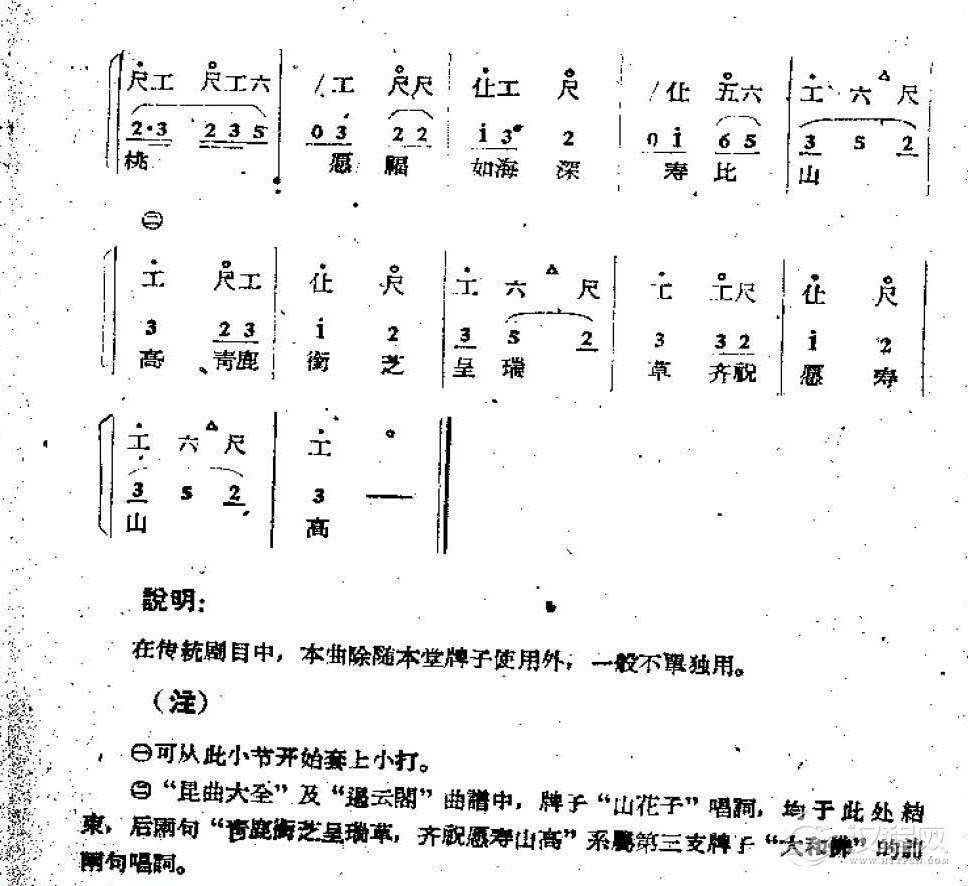 尺工 尺工六 /工 尺尺 仩工 尺 /仩 五六 工 六 尺
2·3 2 3 5 0 3 2 2 i 3 2 0 i 6 5 3 5 2
桃 愿 福 如海 深 寿 比 山
㊁
工 尺工 仩 尺 工 六 尺 工 工尺 仩 尺
3 2 3 i 2 3 5 2 3 3 2 i 2
高 青鹿 衔 芝 呈 瑞 草 齐祝 愿 寿
工 六 尺 工
3 5 2 3 —
山 高
說明:
在传統剧目中，本曲除随本堂牌子使用外，一般不單独用。
（注）
㊀可从此小节开始套上小打。
㊁“昆曲大全”及“遏云閣”曲譜中，牌子“山花子”唱詞，均于此处結
束，后兩句“青鹿衔芝呈瑞草，齐祝愿寿山高”系屬第三支牌子“大和佛”的前
兩句唱詞。